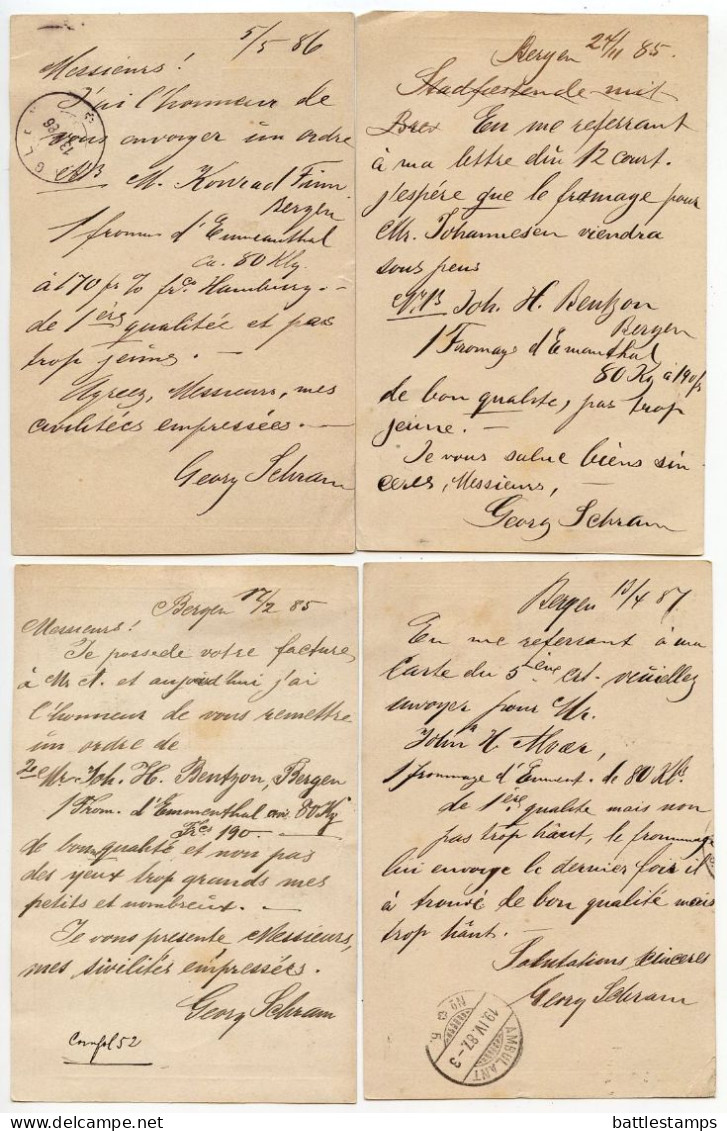 5/5 86
Messieurs!
J'ai l'honneur de
vous envoyer un ordre
M. Konrad Finn
Bergen
1 from d'Emmenthal
ca. 80 Klg.
à 170 fr % frco Hamburg.-
de 1ère qualitée et pas
trop jeune. -
Agreez, Messieurs, mes
civilitées empressées. -
Georg Schram
Bergen 24/11 85.
En me referrant
à ma lettre du 12 court.
j'espère que le fromage pour
Mr. Johannesen viendra
sous peus
Joh. H. Bentzon
Bergen
1 Fromage d'Emanthal
80 Kg à 190 fr
de bon qualite, pas trop
jeune. -
Je vous salue biens sin-
ceres, Messieurs, -
Georg Schram
Bergen 17/2 85
Messieurs!
Je possede votre facture
à Mr A. et aujourd'hui j'ai
l'honneur de vous remettre
un ordre de
Mr. Joh. H. Bentzon, Bergen
1 From. d'Emmenthal 80 Kg
Frcs 190. -
de bon qualité et non pas
des yeux trop grands mes
petits et nombreux. -
Je vous presente Messieurs,
mes sivilités empressées.
Georg Schram
52
Bergen 13/4 87
En me referrant à ma
Carte du 5ième ct. veuillez
envoyer pour Mr.
John H.
1 frommage d'Emment. de 80 Klo
de 1ère qualite mais non
pas trop hânt, le frommage
lui envoye le dernier fois il
à trouvé de bon qualité mais
trop hânt. -
Salutations sinceres
Georg Schram
AMBULANT
19.IV.87.-3
No 6.
battlestamps